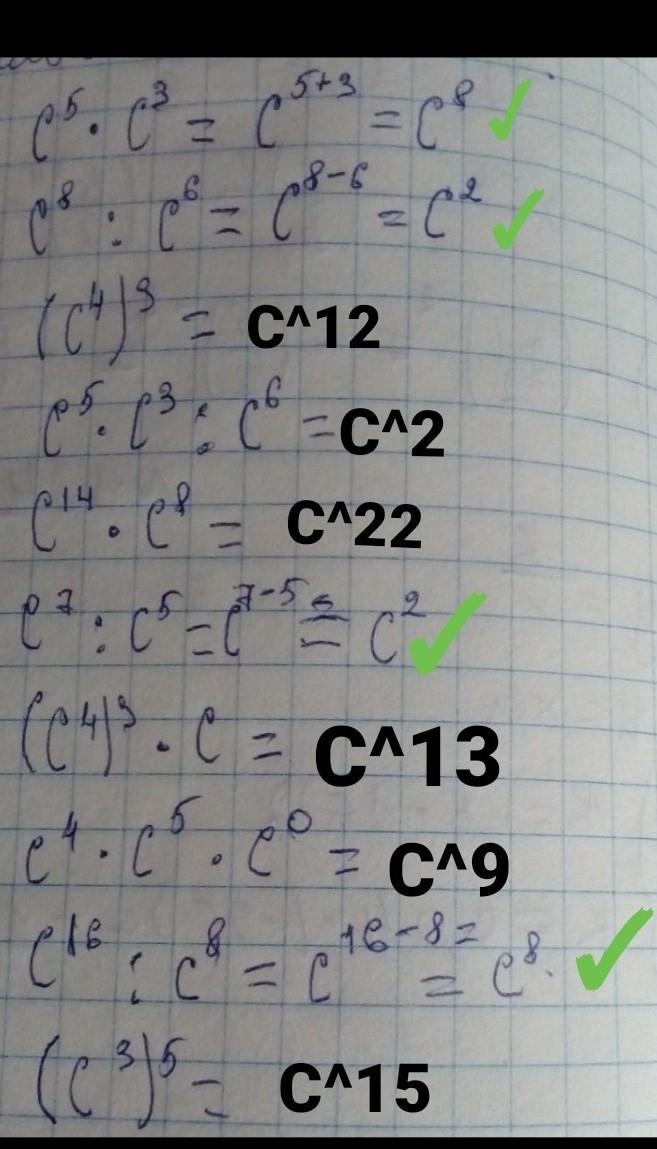 c⁵ · c³ = c⁵⁺³ = c⁸ ✓
c⁸ : c⁶ = c⁸⁻⁶ = c² ✓
(c⁴)³ = C^12
c⁵ · c³ : c⁶ = C^2
c¹⁴ · c⁸ = C^22
c⁷ : c⁵ = c⁷⁻⁵ = c² ✓
(c⁴)³ · c = C^13
c⁴ · c⁵ · c⁰ = C^9
c¹⁶ : c⁸ = c¹⁶⁻⁸ = = c⁸. ✓
(c³)⁵ = C^15